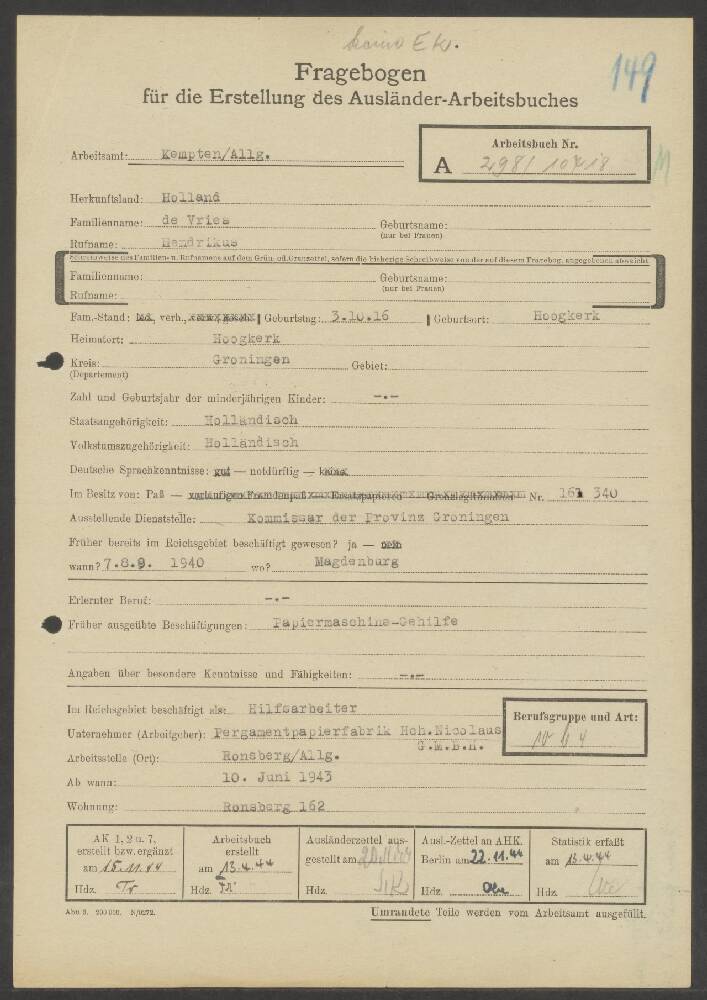 keine EK.
149
Fragebogen
für die Erstellung des Ausländer-Arbeitsbuches
Arbeitsamt: Kempten/Allg.
Arbeitsbuch Nr.
A 298/
M
Herkunftsland: Holland
Familienname: de Vries Geburtsname:
(nur bei Frauen)
Rufname: Hendrikus
Schreibweise des Familien- u. Rufnamens auf dem Grün- od. Grenzettel, sofern die bisherige Schreibweise von der auf diesem Fragebog. angegebenen abweicht
Familienname: Geburtsname:
(nur bei Frauen)
Rufname:
Fam.-Stand: verh., Geburtstag: 3.10.16 Geburtsort: Hoogkerk
Heimatort: Hoogkerk
Kreis: Groningen Gebiet:
(Departement)
Zahl und Geburtsjahr der minderjährigen Kinder: -.-
Staatsangehörigkeit: Holländisch
Volkstumszugehörigkeit: Holländisch
Deutsche Sprachkenntnisse: gut — notdürftig — keine
Im Besitz von: Paß — vorläufigem Fremdenpaß — Ersatzpapieren — Grenzlegitimation Nr. 161 340
Ausstellende Dienststelle: Kommissar der Provinz Groningen
Früher bereits im Reichsgebiet beschäftigt gewesen? ja — nein
wann? 7.8.9. 1940 wo? Magdenburg
Erlernter Beruf: -.-
Früher ausgeübte Beschäftigungen: Papiermaschine-Gehilfe
Angaben über besondere Kenntnisse und Fähigkeiten: -.-
Im Reichsgebiet beschäftigt als: Hilfsarbeiter
Berufsgruppe und Art:
Unternehmer (Arbeitgeber): Pergamentpapierfabrik Hch. Nicolaus
G.m.b.H.
Arbeitsstelle (Ort): Ronsberg/Allg.
Ab wann: 10. Juni 1943
Wohnung: Ronsberg 162
AK 1, 2 u. 7, erstellt bzw. ergänzt am 15.11.44 Hdz. Tr
Arbeitsbuch erstellt am 13.4.44 Hdz.
Ausländerzettel ausgestellt am Hdz.
Ausl.-Zettel an AHK. Berlin am 22.11.44 Hdz.
Statistik erfaßt am 13.4.44 Hdz.
Umrandete Teile werden vom Arbeitsamt ausgefüllt.